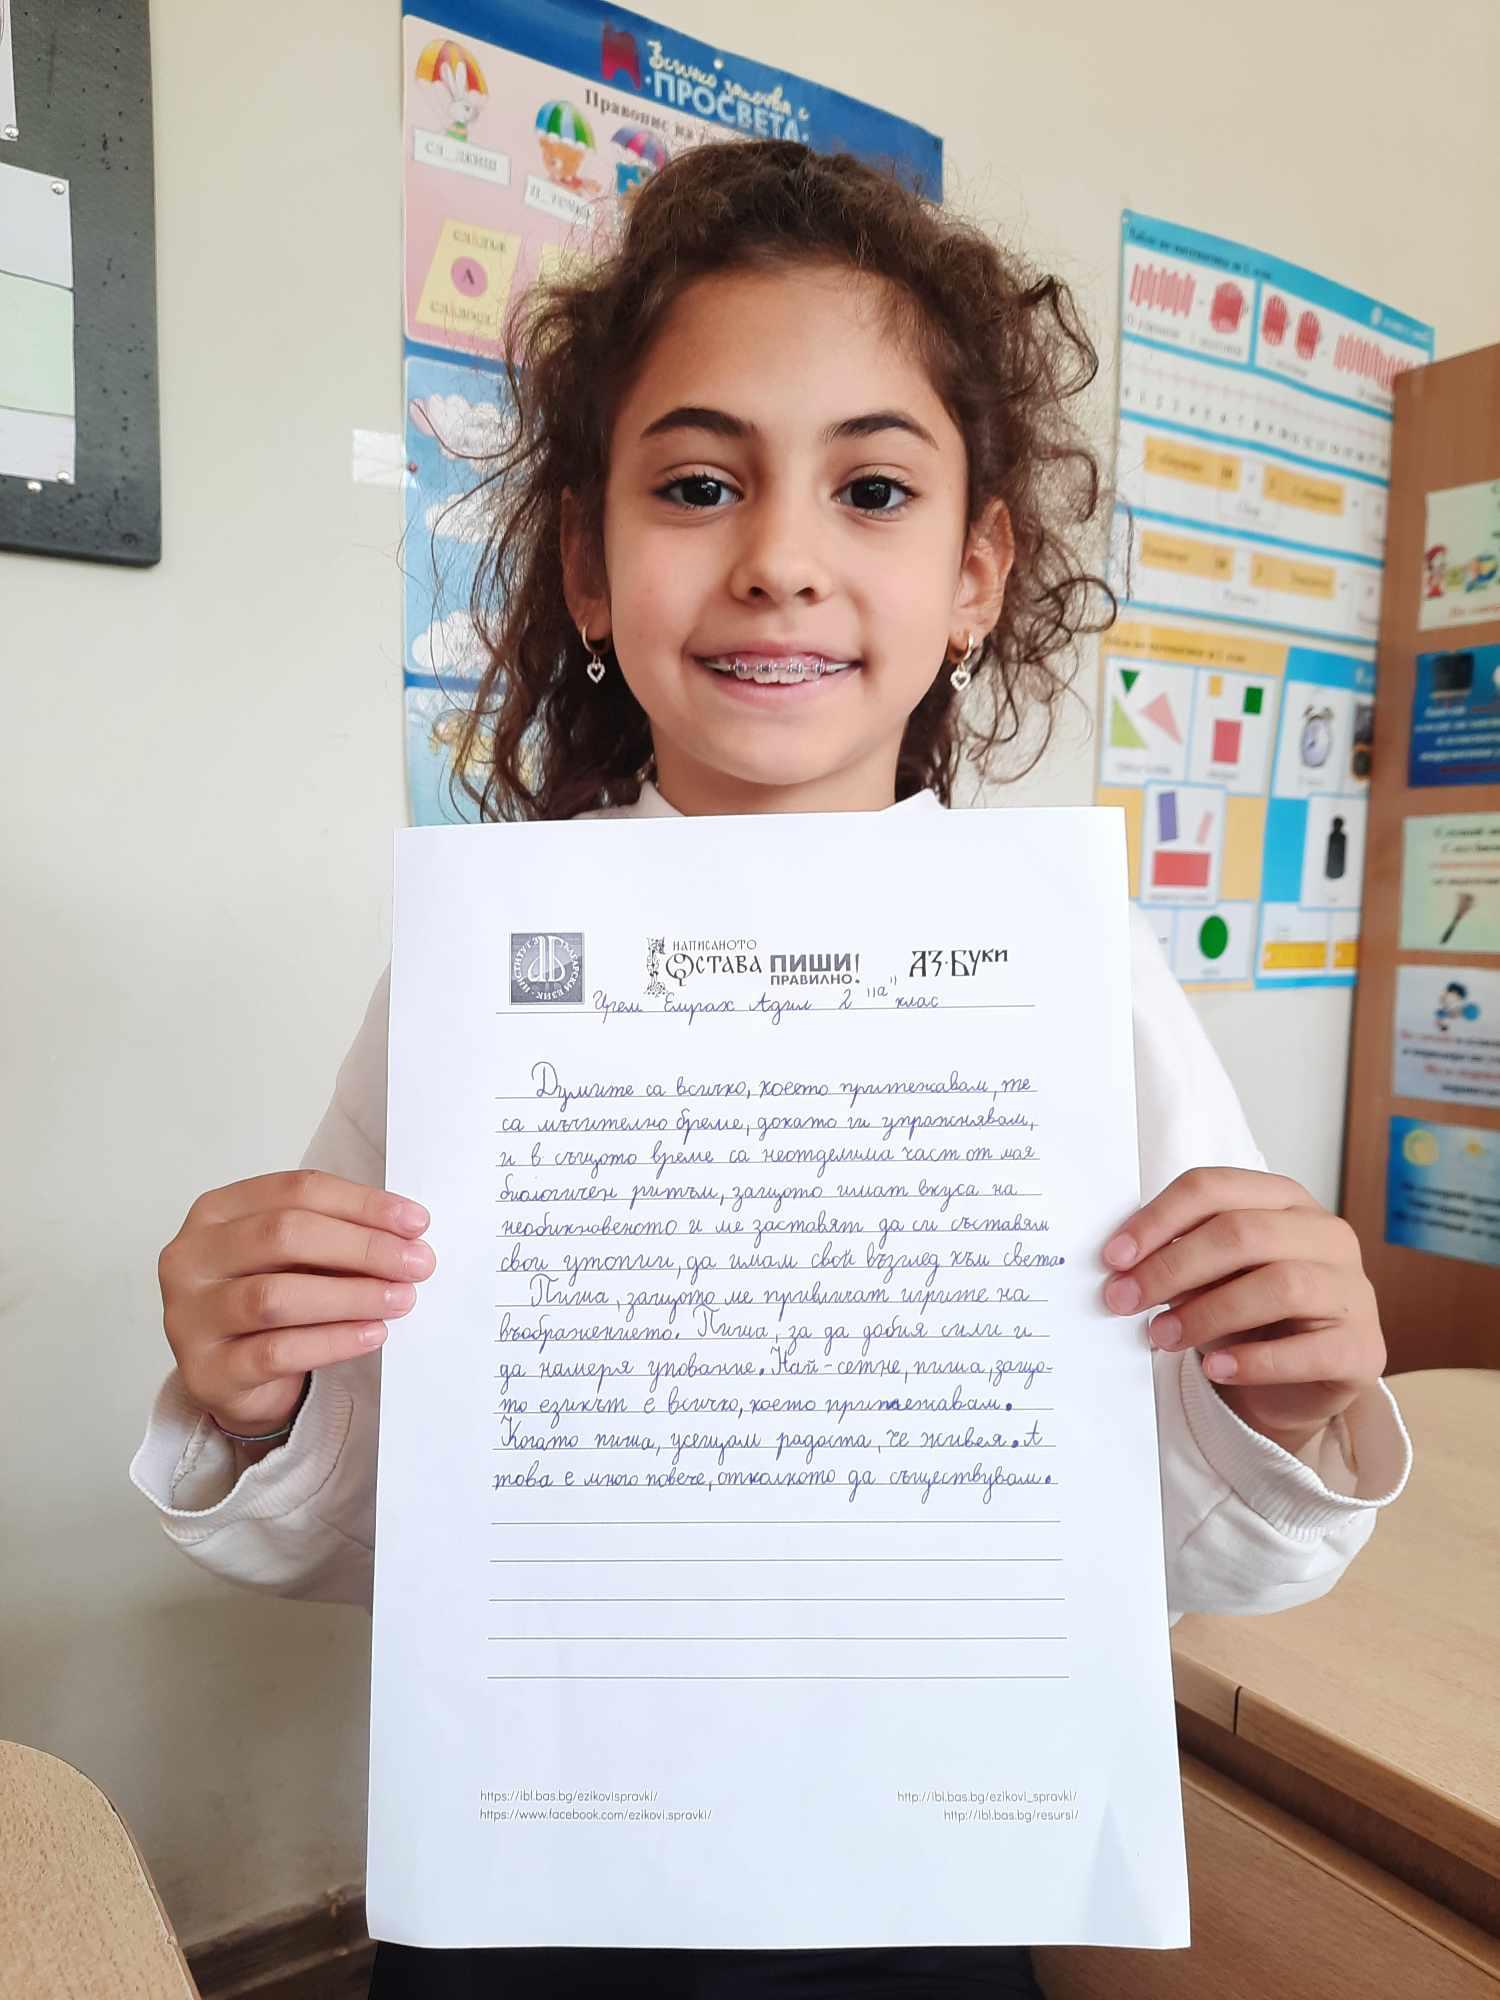 Всичко започва с
ПРОСВЕТА
Правопис на
сл_диш
п_течка
сладък
А
сладост
ИНСТИТУТ ЗА БЪЛГАРСКИ ЕЗИК
НАПИСАНОТО
ОСТАВА
ПИШИ
ПРАВИЛНО!
АЗ·БУКИ
Ирем Емрах Адил 2 "а" клас
Думите са всичко, което притежавам, те
са мъчително бреме, докато ги упражнявам,
и в същото време са неотделима част от моя
биологичен ритъм, защото имат вкуса на
необикновеното и ме заставят да си съставям
свои утопии, да имам свой възглед към света.
Пиша, защото ме привличат игрите на
въображението. Пиша, за да добия сили и
да намеря упование. Най-сетне, пиша, защо-
то езикът е всичко, което притежавам.
Когато пиша, усещам радостта, че живея. А
това е много повече, отколкото да съществувам.
https://ibl.bas.bg/ezikovispravki/
https://www.facebook.com/ezikovi.spravki/
http://ibl.bas.bg/ezikovi_spravki/
http://ibl.bas.bg/resursi/